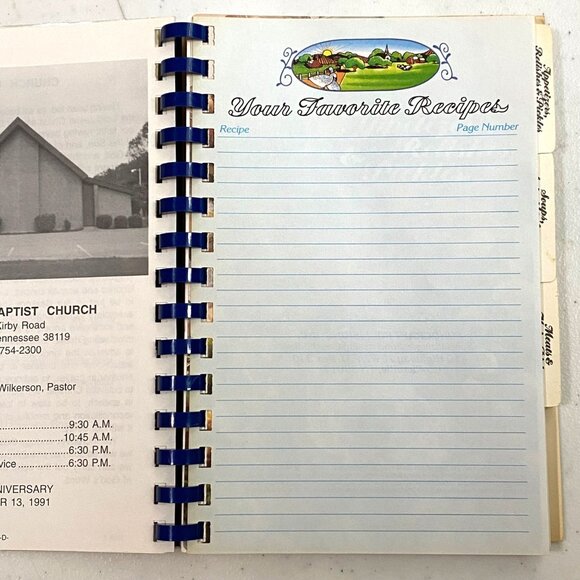 APTIST CHURCH
Kirby Road
ennessee 38119
754-2300
Wilkerson, Pastor
9:30 A.M.
10:45 A.M.
6:30 P.M.
vice 6:30 P.M.
NIVERSARY
R 13, 1991
-D-
Your Favorite Recipes
Recipe Page Number
Appetizers,
Relishes & Pickles
Soups,
Meats &